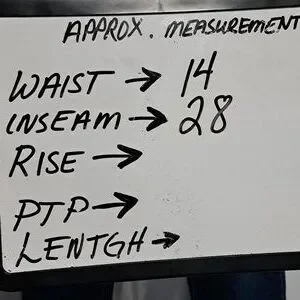 APPROX. MEASUREMENT
WAIST → 14
INSEAM → 28
RISE →
PTP →
LENTGH →